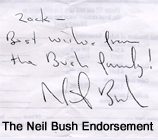 Zack –
Best wishes from
the Bush family!
Neil Bush
The Neil Bush Endorsement